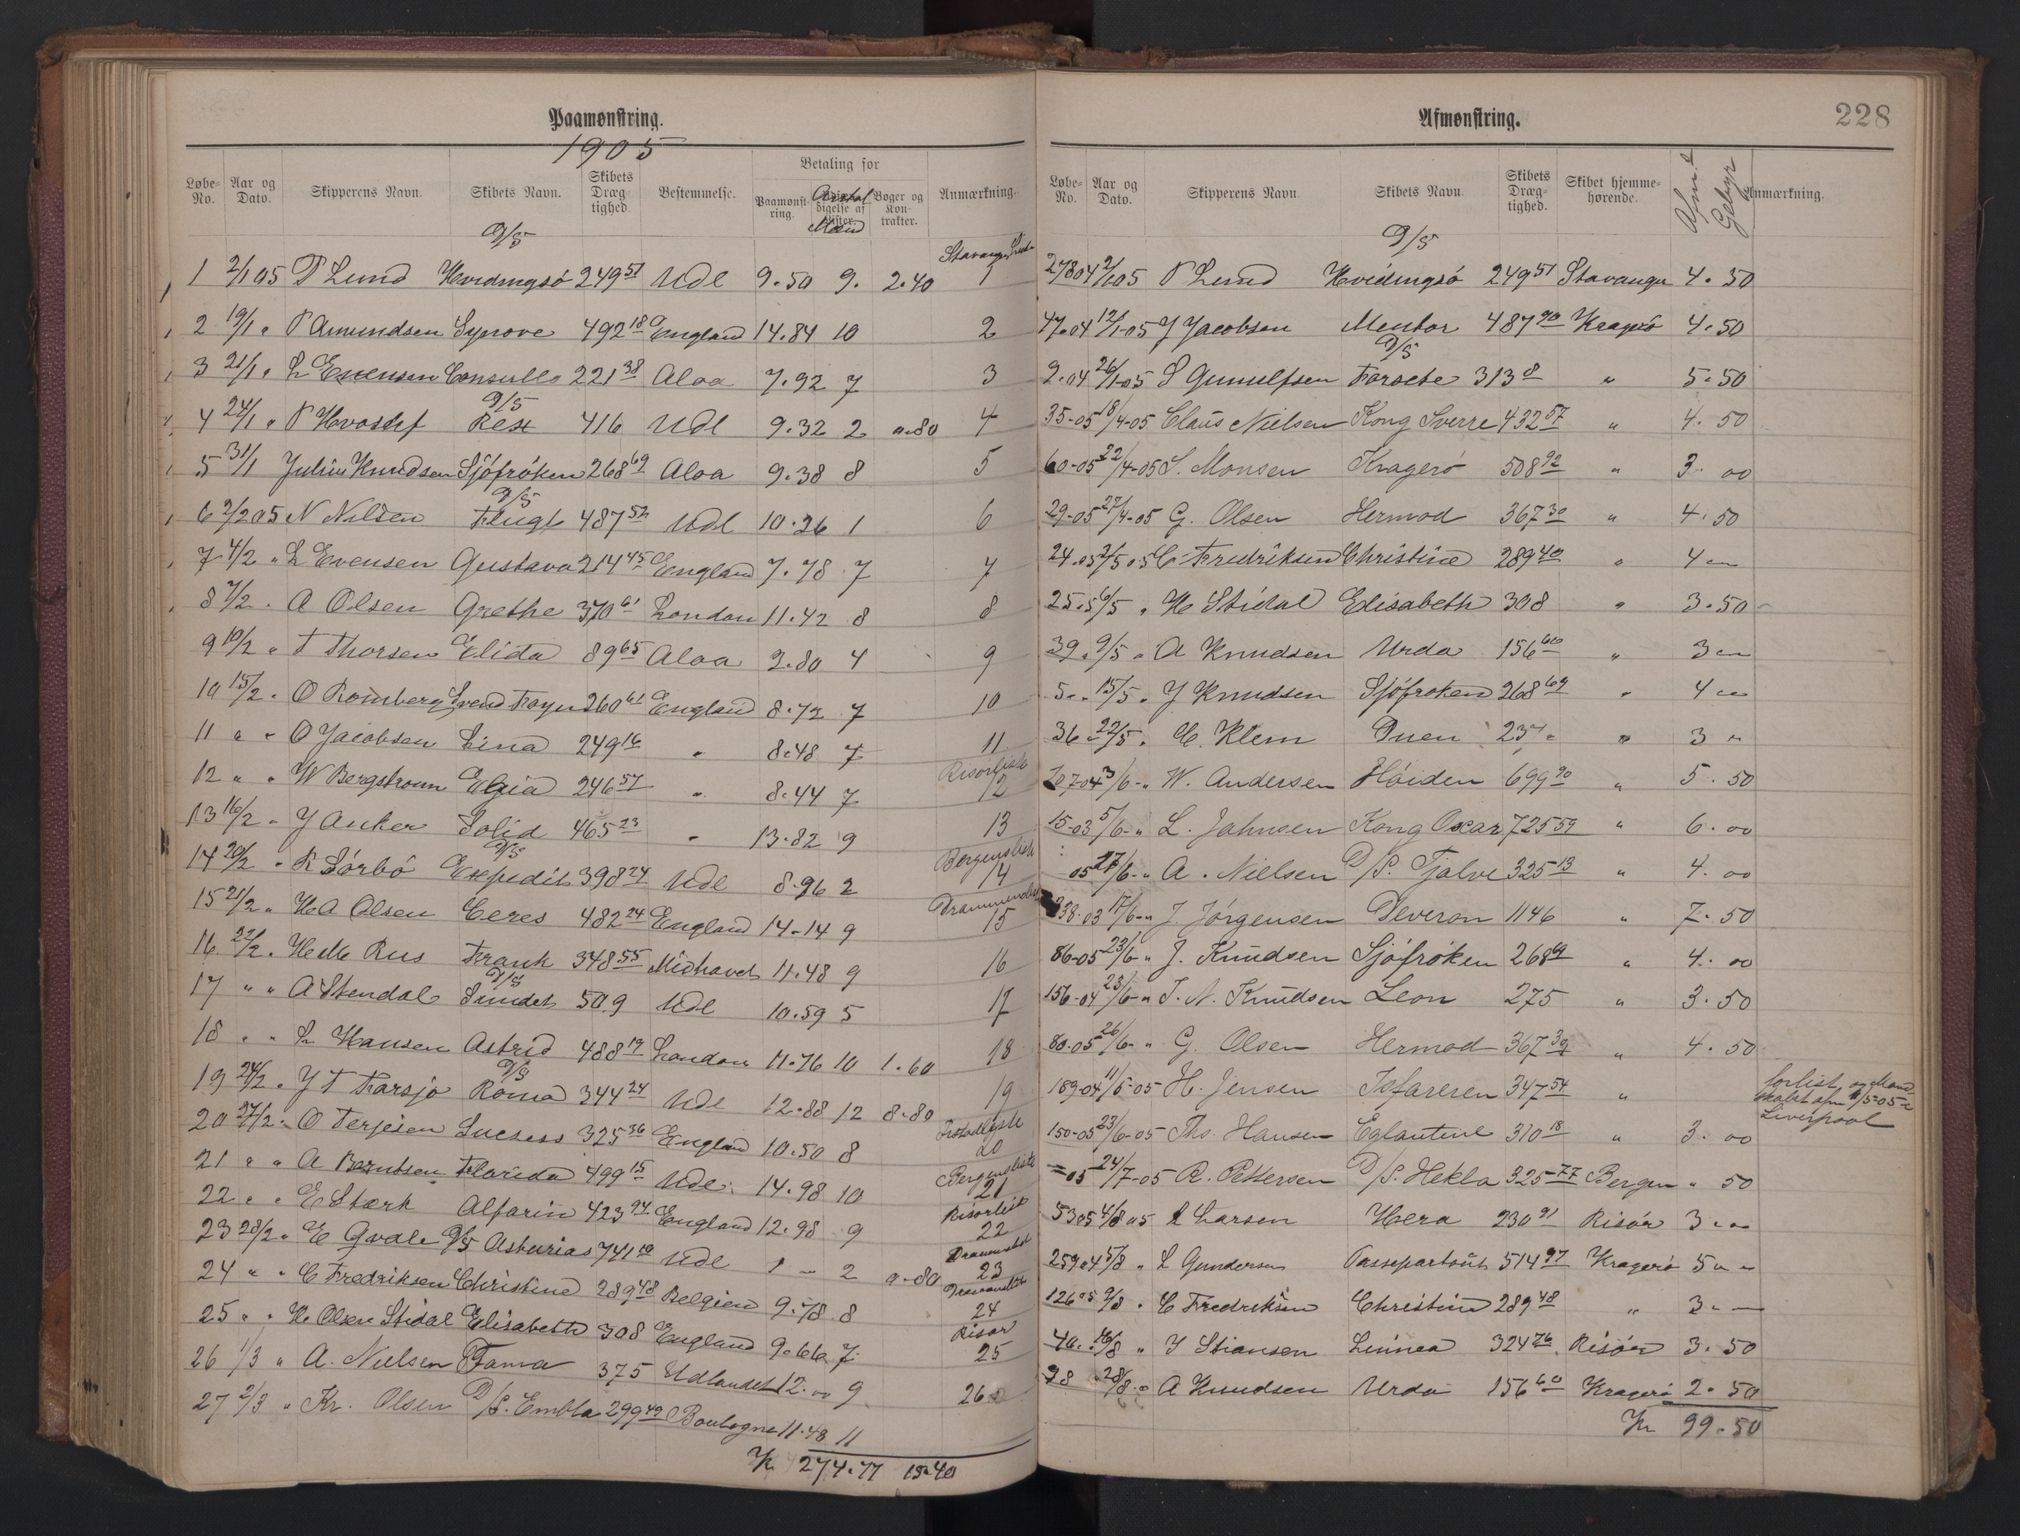 Paamønstring.
1905
Løbe-No. Aar og Dato. Skipperens Navn. Skibets Navn. Skibets Dræg-tighed. Bestemmelse. Betaling for Paamønst-ring. Antal Mand Bøger og Kon-trakter. Anmærkning.
D/S
1 2/1 05 P Lund Hvidingsø 249 51 Udl 9.50 9. 2.40 1
2 19/1 " P Amundsen Synove 492 18 England 14.84 10 2
3 21/1 " L Evensen Consul 221 38 Aloa 7.92 7 3
D/S
4 24/1 " P Hvoslef Rex 416 Udl 9.32 2 0.80 4
5 31/1 Julius Knudsen Sjöfröken 268 69 Aloa 9.38 8 5
D/S
6 2/2 05 N Nilsen Flugt 487 52 Udl 10.26 1 6
7 4/2 " L Evensen Gustava 214 45 England 7.78 7 7
8 7/2 " A Olsen Grethe 370 61 London 11.42 8 8
9 10/2 " T Thorsen Elida 89 65 Aloa 2.80 4 9
10 15/2 " O Romberg Svend Foyn 260 61 England 8.72 7 10
11 " " O Jacobsen Lina 249 16 " 8.48 7 11
Risørliste
12 " " W Bergstrom Elgia 246 57 " 8.44 7 12
13 16/2 " J Anker Solid 465 23 " 13.82 9 13
D/S Bergensliste
14 20/2 " R Sørbø Expedit 398 24 Udl 8.96 2 14
15 21/2 " HA Olsen Ceres 482 24 England 14.14 9 15
16 22/2 " HM Rus Frank 348 55 Midhavet 11.48 9 16
D/S
17 " " A Stendal Sundet 509 Udl 10.59 5 17
18 " " L Hansen Astrid 488 19 London 11.76 10 1.60 18
D/S
19 24/2 " J T Farsjø Roma 344 24 Udl 12.88 12 8.80 19
20 27/2 " O Terjesen Sucsess 325 36 England 10.50 8 20
Bergensliste
21 " " A Berntsen Florida 499 15 Udl 14.98 10 21
Risørliste
22 " " E Stærk Alfarin 423 94 England 12.98 9 22
23 28/2 " E Qvale D/S Asturias 741 10 Udl 1 - 2 0.80 23
24 " " C Fredriksen Christine 289 48 Belgien 9.78 8 24
Risør
25 " " H Olsen Stidal Elisabeth 308 England 9.66 7 25
26 1/3 " A. Nielsen Fama 375 Udlandet 12.00 9 26
27 2/3 " Kr. Olsen D/S. Embla 299 49 Boulogne 11.48 11
Kr 274.77 15.40
Afmønstring.
228
Løbe-No. Aar og Dato. Skipperens Navn. Skibets Navn. Skibets Dræg-tighed. Skibet hjemme-hørende. Gebyr Anmærkning.
D/S
278 04 2/1 05 P Lund Hvidingsø 249 51 Stavanger 4.50
47.04 12/1-05 J Jacobsen Mentor 487 90 Kragerø 4.50
D/S
2.04 26/1-05 S Gunulfsen Forsete 313 8 " 5.50
35-05 18/4-05 Claus Nielsen Kong Sverre 432 57 " 4.50
60-05 22/4-05 S. Monsen Kragerø 508 92 " 3.00
29-05 27/4-05 G. Olsen Hermod 367 30 " 4.50
24.05 2/5 05 C Fredriksen Christine 289 40 " 4 "
25.5 6/5 " H Stidal Elisabeth 308 " 3.50
39 " 9/5 " A Knudsen Urda 156 60 " 3 "
5 " 15/5 " J Knudsen Sjöfroken 268 69 " 4 "
36 " 22/5 " C. Klem Duen 237 " " 3 "
207-04 3/6 " W. Andersen Höiden 699 90 " 5.50
15-03 5/6 " L. Jahnsen Kong Oscar 725 59 " 6.00
05 17/6 " A. Nielsen D/S. Tjalve 325 13 " 4.00
238.03 17/6 " J. Jørgensen Deveron 1146 " 7.50
86-05 23/6 " J. Knudsen Sjöfröken 268 69 " 4.00
156-04 23/6 " T. N. Knudsen Leon 275 " 3.50
80-05 26/6 " G. Olsen Hermod 367 39 " 4.50
189-04 11/5-05 H. Jensen Isfareren 347 54 " forlist, og Mand
skabet afm 11/5-05 i
Liverpool
150-05 23/6-05 Ths. Hansen Eglantine 310 18 " 3.00
05 24/7-05 R. Pettersen D/S. Hekla 325 77 Bergen " 50
53 05 4/8 05 L Larsen Hera 230 91 Risør 3 "
259.4 5/8 " L Gundersen Passepartout 514 97 Kragerø 5 "
126 05 9/8 " C Fredriksen Christine 289 48 " 3 "
46 " 16/8 " J Stiansen Linnea 324 76 Risør 3.50
98 28/8 " A Knudsen Urda 156 60 Kragerø 2.50
Kr 99.50